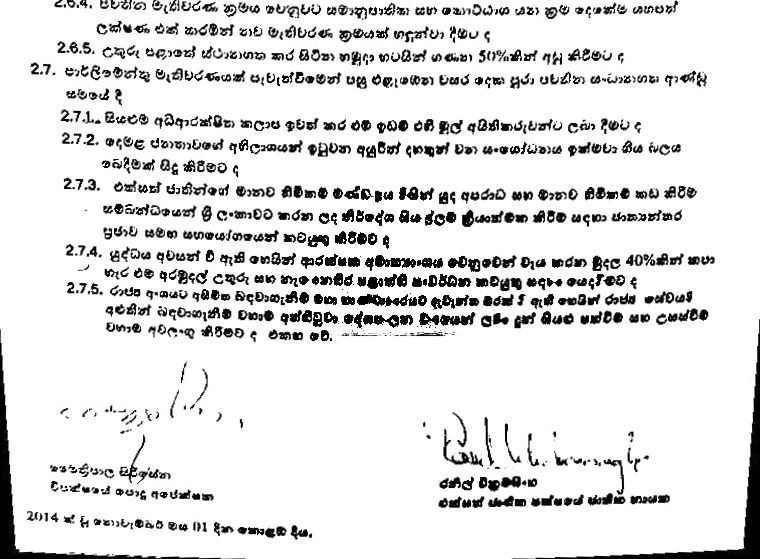 2.6.4. පවතින මැතිවරණ ක්‍රමය වෙනුවට සමානුපාතික සහ කොට්ඨාශ යන ක්‍රම දෙකේම යහපත්
ලක්ෂණ එක් කරමින් නව මැතිවරණ ක්‍රමයක් හඳුන්වා දීමට ද
2.6.5. උතුරු පළාතේ ස්ථානගත කර සිටින හමුදා භටයින් ගණන 50%කින් අඩු කිරීමට ද
2.7. පාර්ලිමේන්තු මැතිවරණයක් පැවැත්වීමෙන් පසු එළැඹෙන වසර දෙක පුරා පවතින සංධානගත ආණ්ඩු
සමයේ දී
2.7.1. සියළුම අධිආරක්ෂිත කලාප ඉවත් කර එම ඉඩම් එහි මුල් අයිතිකරුවන්ට ලබා දීමට ද
2.7.2. දෙමළ ජනතාවගේ අභිලාශයන් ඉටුවන අයුරින් දහතුන් වන සංශෝධනය ඉක්මවා ගිය බලය
බෙදීමක් සිදු කිරීමට ද
2.7.3. එක්සත් ජාතීන්ගේ මානව හිමිකම් මණ්ඩලය විසින් යුද අපරාධ සහ මානව හිමිකම් කඩ කිරීම්
සම්බන්ධයෙන් ශ්‍රී ලංකාවට කරන ලද නිර්දේශ සියල්ලම ක්‍රියාත්මක කිරීම සඳහා ජාත්‍යන්තර
ප්‍රජාව සමඟ සහයෝගයෙන් කටයුතු කිරීමට ද
2.7.4. යුද්ධය අවසන් වී ඇති හෙයින් ආරක්ෂක අමාත්‍යාංශය වෙනුවෙන් වැය කරන මුදල 40%කින් කපා
හැර එම අරමුදල් උතුරු සහ නැගෙනහිර පළාත්හි සංවර්ධන කටයුතු සඳහා යෙදවීමට ද
2.7.5. රාජ්‍ය අංශයට අසීමිත බඳවාගැනීම් මහා භාණ්ඩාගාරයට දැවැන්ත බරක් වී ඇති හෙයින් රාජ්‍ය සේවයට
අළුතින් බඳවාගැනීම් වහාම අත්හිටුවා දේශපාලන වශයෙන් ලබා දුන් සියළු පත්වීම් සහ උසස්වීම්
වහාම අවලංගු කිරීමට ද එකඟ වේ.
මෛත්‍රීපාල සිරිසේන
විපක්ෂයේ පොදු අපේක්ෂක
රනිල් වික්‍රමසිංහ
එක්සත් ජාතික පක්ෂයේ ජාතික නායක
2014 ක් වූ නොවැම්බර් මස 01 දින කොළඹ දීය.